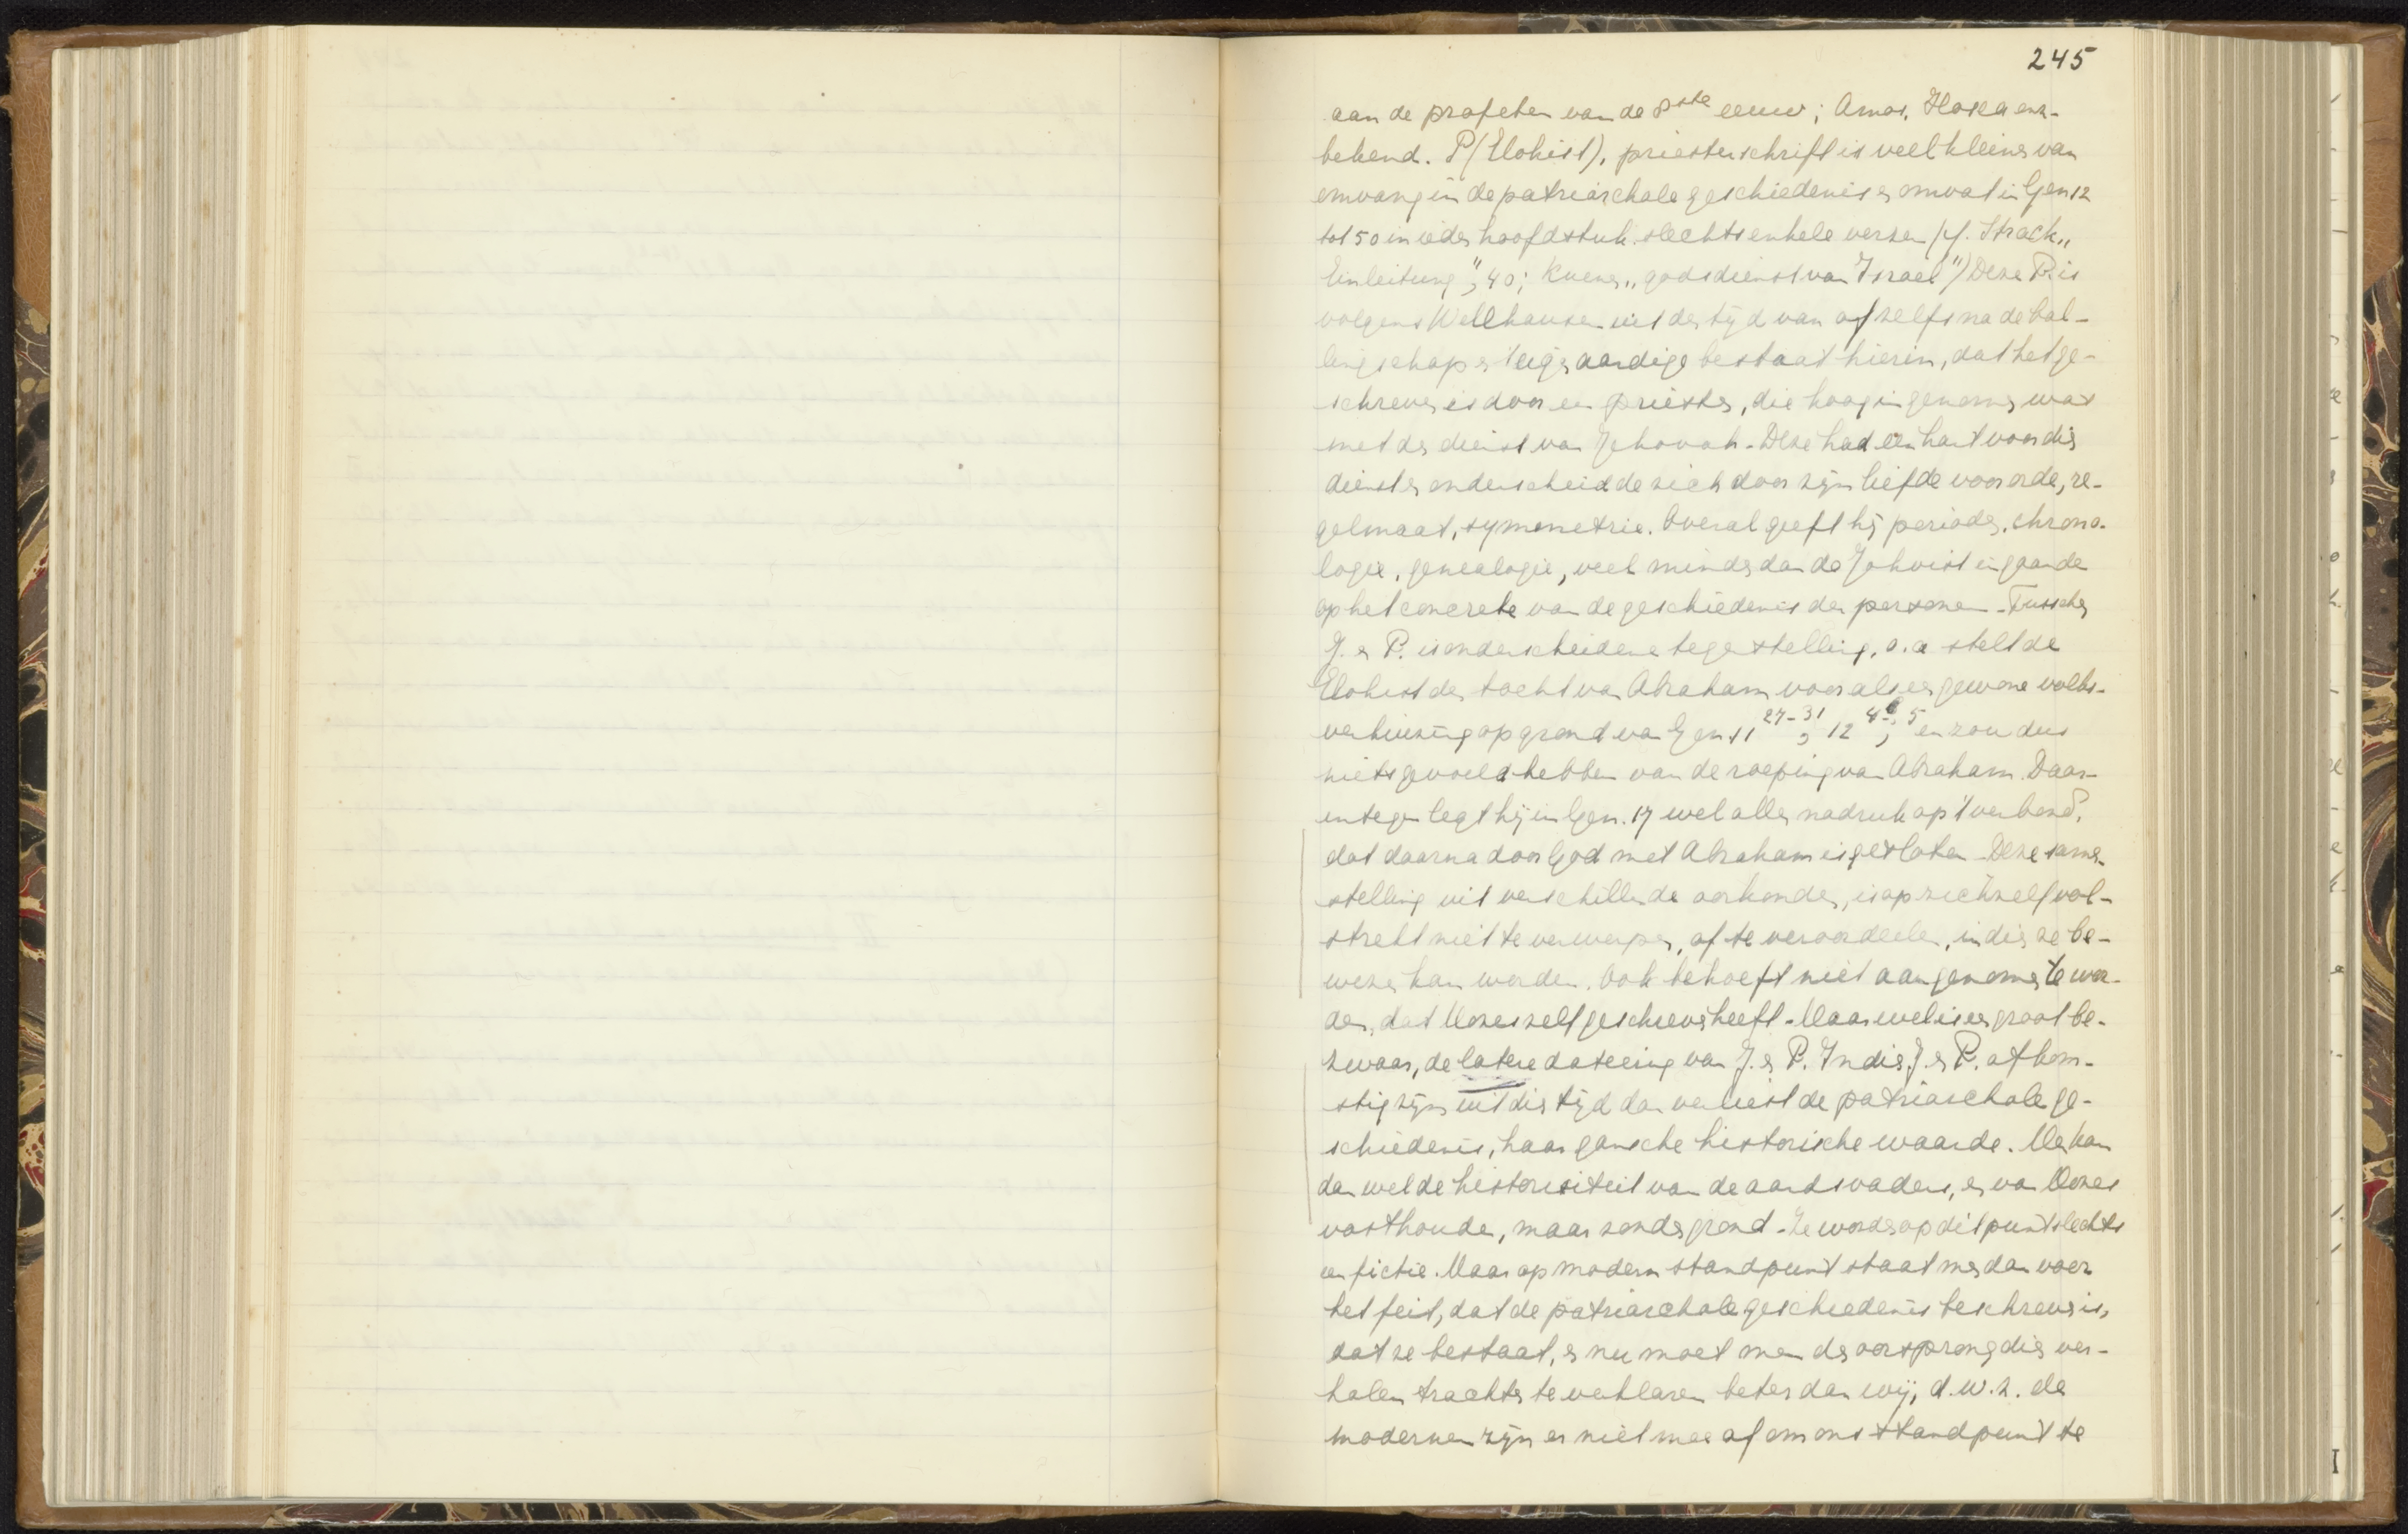 245
aan de profeten van de 8ste eeuw; Amos, Hosea enz.
bekend. P (Elohist), priesterschrift is veel kleiner van
omvang in de patriarchale geschiedenis en omvat in Gen 12
tot 50 in ieder hoofdstuk slechts enkele verzen (cf. Strack „
Einleitung”, 40; Kuenen „godsdienst van Israel”) Deze P. is
volgens Wellhausen uit den tijd van of zelfs na de bal-
lingschap en 't eigenaardige bestaat hierin, dat het ge-
schreven is door een priester, die hoog ingenomen was
met den dienst van Jehovah. Deze had een hart voor dien
dienst en onderscheidde zich door zijn liefde voor orde, re-
gelmaat, symmetrie. Overal geeft hij perioden, chrono-
logie, genealogie, veel minder dan de Jahvist ingaande
op het concrete van de geschiedenis der personen. Tusschen
J. en P. is onderscheidene tegenstelling, o.a stelt de
Elohist den tocht van Abraham voor als een gewone volks-
verhuizing op grond van Gen 11 27-31, 12 4b, 5 en zou dus
niets gevoeld hebben van de roeping van Abraham. Daar-
entegen legt hij in Gen. 17 wel allen nadruk op 't verbond,
dat daarna door God met Abraham is gesloten. Deze samen-
stelling uit verschillende oorkonden, is op zichzelf vol-
strekt niet te verwerpen, of te veroordeelen, indien ze be-
wezen kan worden. Ook behoeft niet aangenomen te wor-
den, dat Mozes zelf geschreven heeft. Maar wel is een groot be-
zwaar, de latere dateering van J. en P. Indien J. en P. afkom-
stig zijn uit dien tijd dan verliest de patriarchale ge-
schiedenis, haar gansche historische waarde. Men kan
dan wel de historiciteit van de aardsvaders, en van Mozes
vasthouden, maar zonder grond. Ze worden op dit punt slechts
een fictie. Maar op modern standpunt staat men dan voor
het feit, dat de patriarchale geschiedenis beschreven is,
dat ze bestaat, en nu moet men den oorsprong dier ver-
halen trachten te verklaren beter dan wij, d.w.z. de
modernen zijn er niet mee af om ons standpunt te